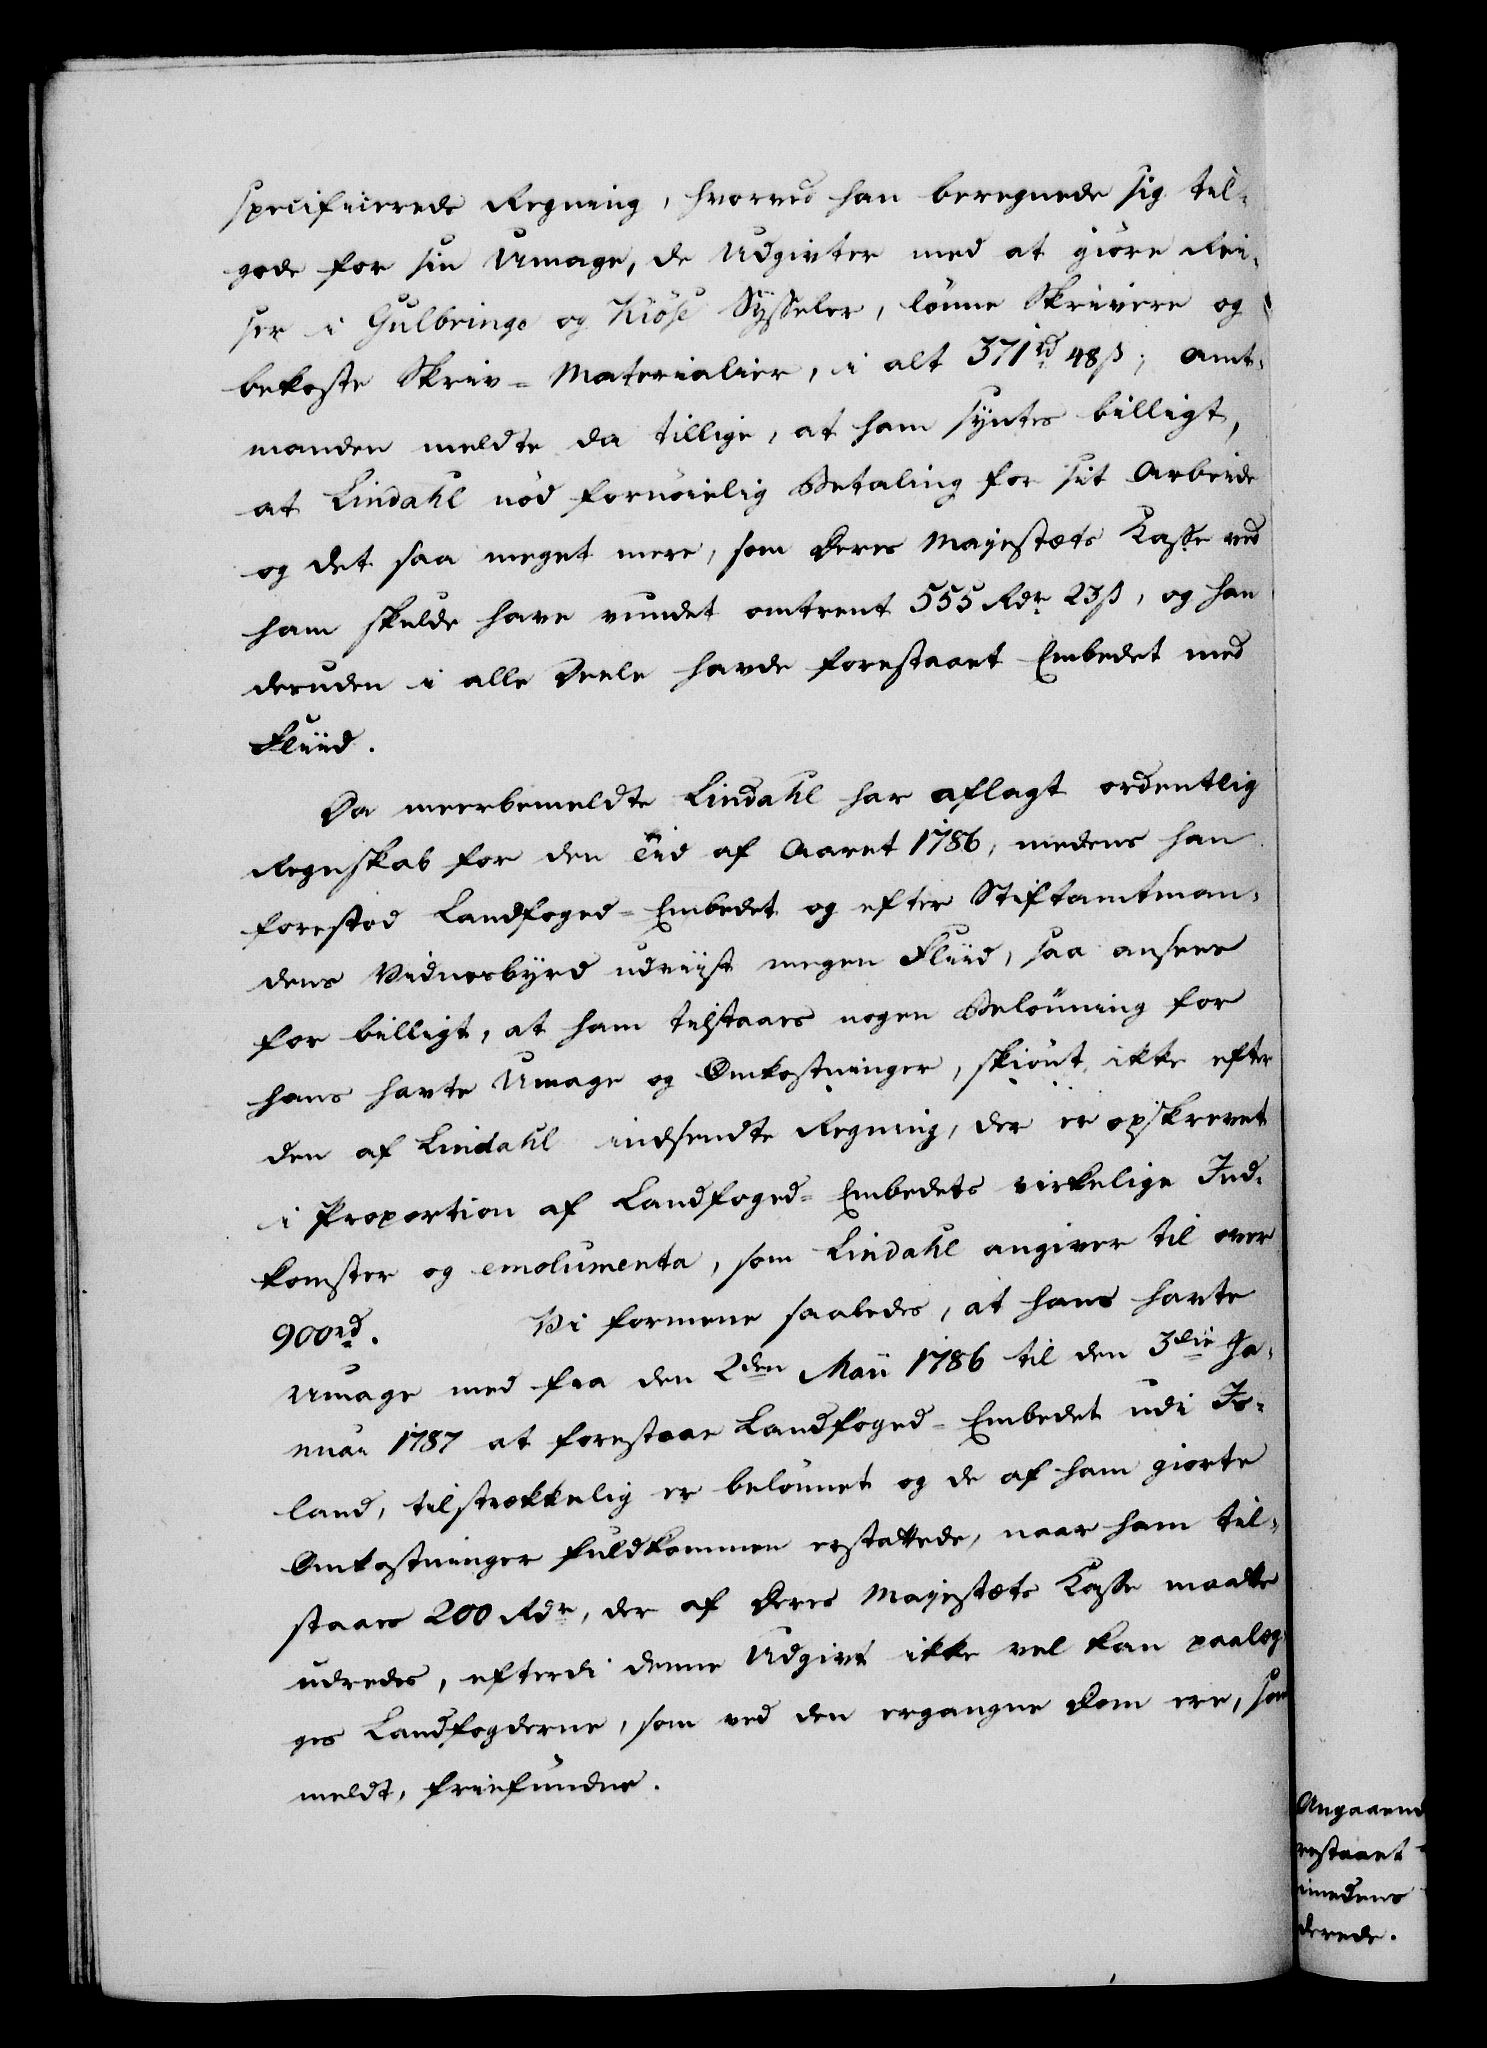 specificerede Regning, hvorved han beregnede sig til-
gode for sin Umage, de Udgivter med at giöre Rei-
ser i Gulbringe og Kiöse Sÿsseler, lönne Skrivere og
bekoste Skriv-Materialier, i alt 371 rd 48 ß; Amt-
manden meldte da tillige, at ham sÿntes billigt,
at Lindahl nöd fornöielig Betaling for sit Arbeide
og det saa meget mere, som Deres Majestæts Kasse ved
ham skulde have vundet omtrent 555 Rdr 23 ß, og han
desuden i alle Deele havde forestaaet Embedet med
Fliid.
Da meerbemeldte Lindahl har aflagt ordentlig
Regnskab for den Tiid af Aaret 1786, medens han
forestod Landfoged-Embedet og efter Stiftamtman-
dens Vidnesbÿrd udviist megen Fliid, saa ansees
for billigt, at ham tilstaaes nogen Belönning for
hans havte Umage og Omkostninger, skiönt ikke efter
den af Lindahl indsendte Regning, der er opskrevet
i Proportion af Landfoged-Embedets virkelige Ind-
komster og emolumenta, som Lindahl angiver til over
900 rd. Vi formene saaledes, at hans havte
Umage med fra den 2den Maii 1786 til den 3die Ja-
nuar 1787 at forestaae Landfoged-Embedet udi Is-
land, tilstrækkelig er belönnet og de af ham giorte
Omkostninger fuldkommen erstattede, naar ham til-
staaes 200 Rdr, der af Deres Majestæts Kasse maatte
udredes, efterdi denne Udgivt ikke vel kan paalæg-
ges Landfogderne, som ved den ergangne Dom ere, som
meldt, friefundne.
Angaaend
restaaet
imedens
derede.